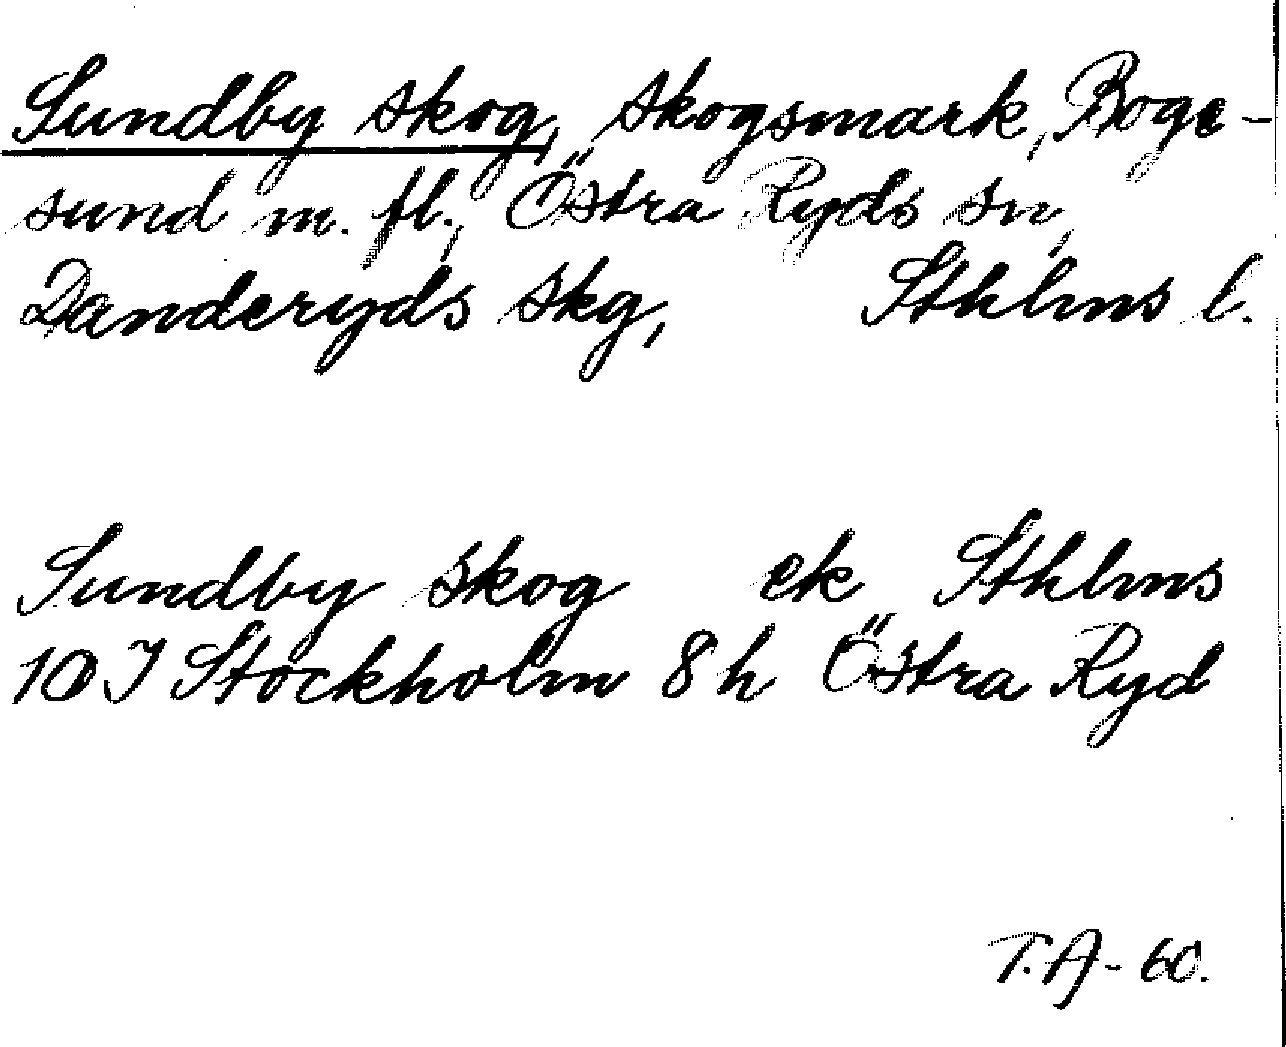 Sundby skog, skogsmark, Boge-
sund m. fl., Östra Ryds sn,
Danderyds skg, Sthlms l.
Sundby skog ek Sthlms
10 I Stockholm 8 h Östra Ryd
T.A-60.